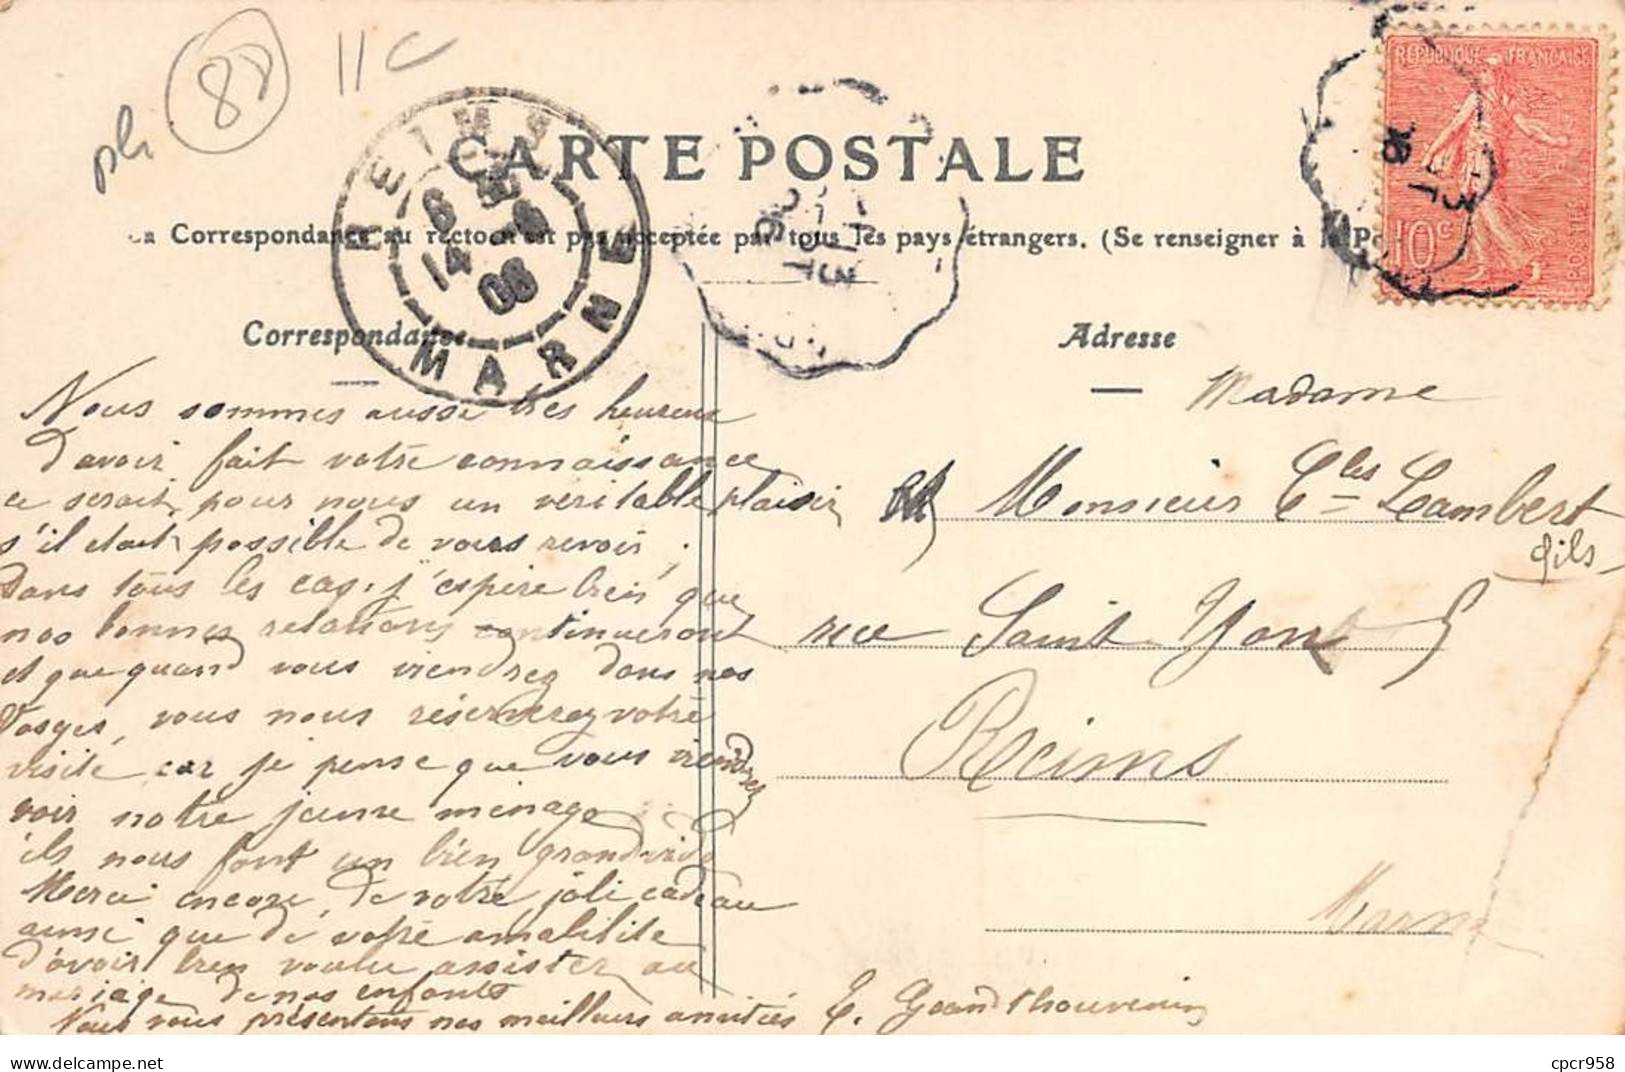 pli 88 11C
REIMS
MARNE
6 M
14 - 6
06
RÉPUBLIQUE FRANÇAISE
10c
POSTES
CARTE POSTALE
La Correspondance au recto n'est pas acceptée par tous les pays étrangers. (Se renseigner à la Po
Correspondance
Adresse
Nous sommes aussi très heureux
d'avoir fait votre connaissance
ce serait pour nous un veritable plaisir
s'il etait possible de vous revoir.
Dans tous les cas, j'espère bien que
nos bonnes relations continueront
et que quand vous viendrez dans nos
Vosges, vous nous réserverez votre
visite car je pense que vous viendrez
voir notre jeune ménage
ils nous font un bien grand vide
Merci encore, de votre joli cadeau
ainsi que de votre amabilite
d'avoir bien voulu assister au
mariage de nos enfants
Nous vous présentons nos meilleurs amitiés
Madame
et Monsieur Cles Lambert
fils
rue Saint Yon 5
Reims
Marne
cpcr958